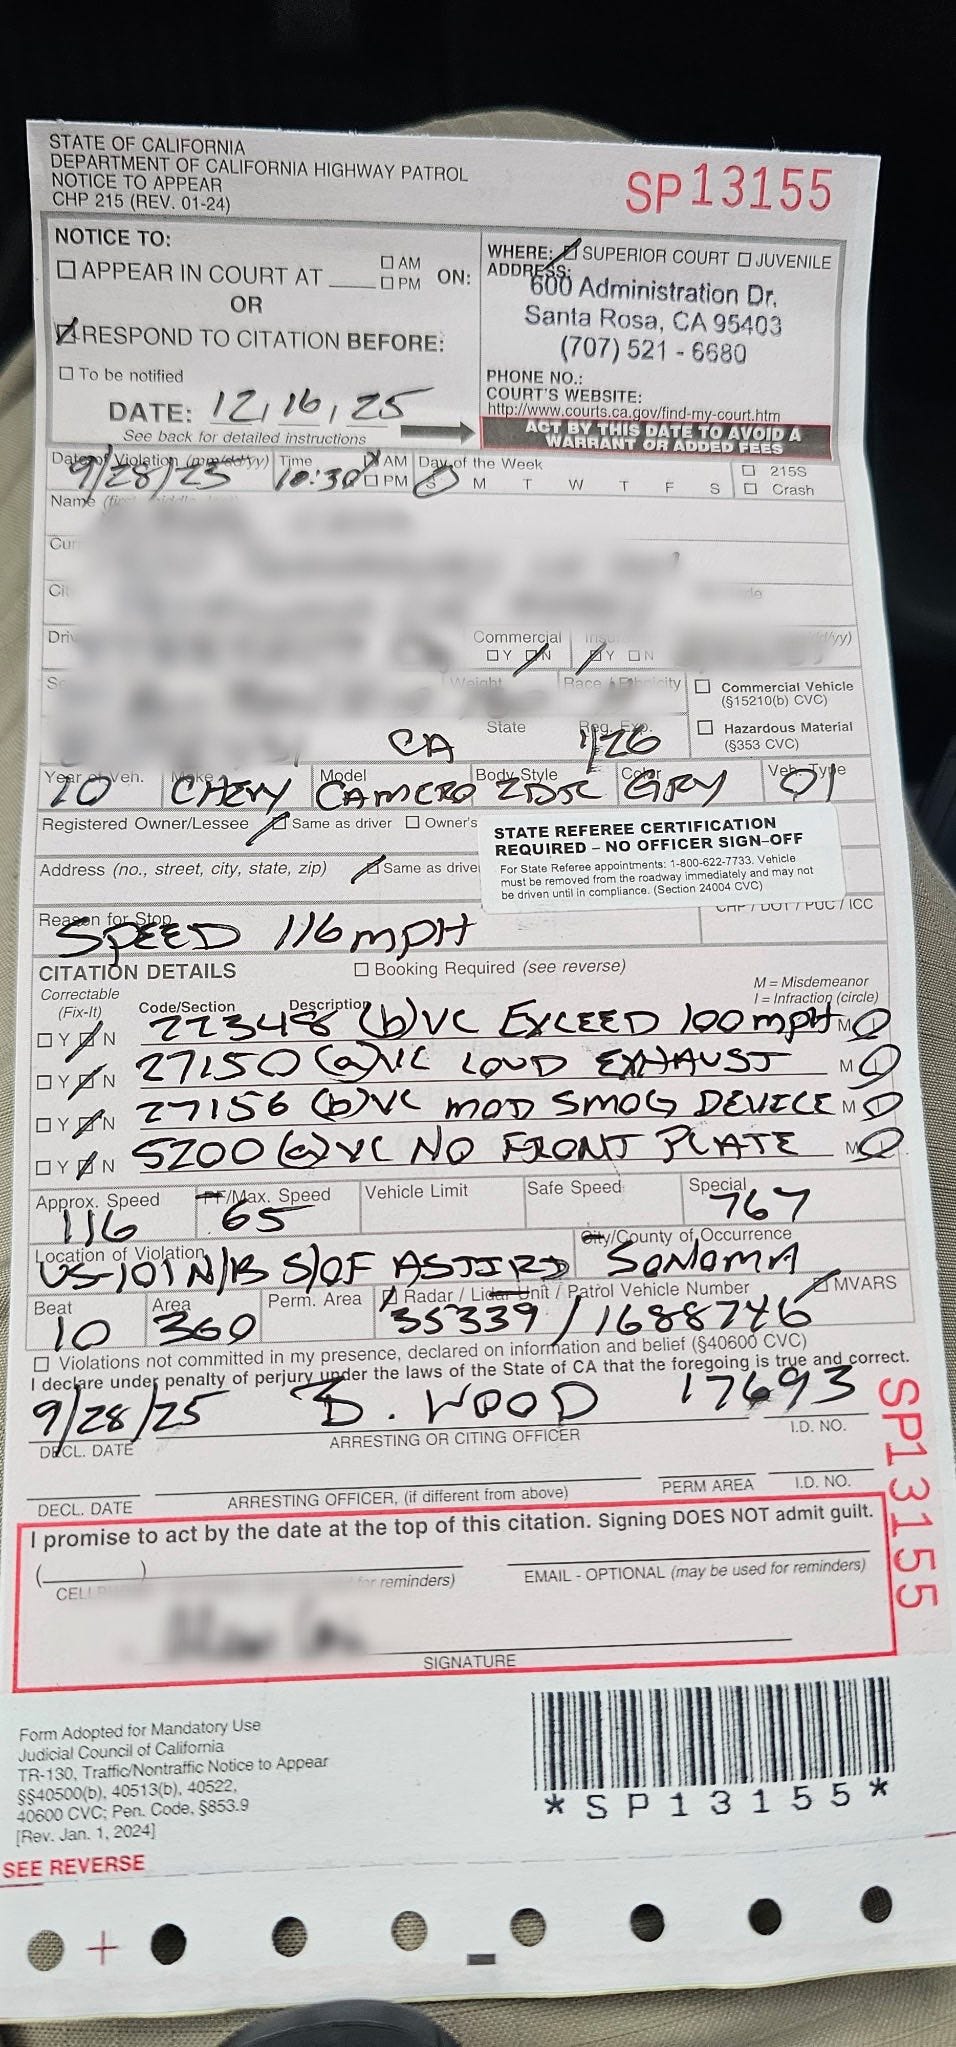 STATE OF CALIFORNIA
DEPARTMENT OF CALIFORNIA HIGHWAY PATROL
NOTICE TO APPEAR
CHP 215 (REV. 01-24)
SP13155
NOTICE TO:
APPEAR IN COURT AT ____ AM PM ON:
OR
RESPOND TO CITATION BEFORE:
To be notified
DATE: 12, 16, 25
See back for detailed instructions
WHERE: SUPERIOR COURT JUVENILE
ADDRESS:
600 Administration Dr.
Santa Rosa, CA 95403
(707) 521 - 6680
PHONE NO.:
COURT'S WEBSITE:
http://www.courts.ca.gov/find-my-court.htm
ACT BY THIS DATE TO AVOID A
WARRANT OR ADDED FEES
Date of Violation (mm/dd/yy) Time AM PM Day of the Week
9/28/25 10:30 S M T W T F S
215S
Crash
Name
Commercial
Y N Y N
Weight Race / Ethnicity
Commercial Vehicle
(§15210(b) CVC)
State Reg. Exp.
CA 1/26
Hazardous Material
(§353 CVC)
Year of Veh. Make Model Body Style Color Veh. Type
10 CHEVY CAMERO 2DSC GRY 01
Registered Owner/Lessee Same as driver Owner's
Address (no., street, city, state, zip) Same as drive
STATE REFEREE CERTIFICATION
REQUIRED – NO OFFICER SIGN–OFF
For State Referee appointments: 1-800-622-7733. Vehicle
must be removed from the roadway immediately and may not
be driven until in compliance. (Section 24004 CVC)
CHP / DOT / PUC / ICC
Reason for Stop
SPEED 116 mPH
CITATION DETAILS Booking Required (see reverse)
Correctable
(Fix-It)
Code/Section Description
M = Misdemeanor
I = Infraction (circle)
Y N 22348 (b) VC EXCEED 100 mPH M I
Y N 27150 (a) VC LOUD EXHAUST M I
Y N 27156 (b) VC MOD SMOG DEVICE M I
Y N 5200 (a) VC NO FRONT PLATE M I
Approx. Speed PF/Max. Speed Vehicle Limit Safe Speed Special
116 65 767
Location of Violation City/County of Occurrence
US-101 N/B S/OF ASTI RD SONOMA
Beat Area Perm. Area Radar / Lidar Unit / Patrol Vehicle Number MVARS
10 360 35339 / 1688746
Violations not committed in my presence, declared on information and belief (§40600 CVC)
I declare under penalty of perjury under the laws of the State of CA that the foregoing is true and correct.
9/28/25 B. WOOD 17693
DECL. DATE ARRESTING OR CITING OFFICER I.D. NO.
DECL. DATE ARRESTING OFFICER, (if different from above) PERM AREA I.D. NO.
SP13155
I promise to act by the date at the top of this citation. Signing DOES NOT admit guilt.
(          )
reminders) EMAIL - OPTIONAL (may be used for reminders)
SIGNATURE
Form Adopted for Mandatory Use
Judicial Council of California
TR-130, Traffic/Nontraffic Notice to Appear
§§40500(b), 40513(b), 40522,
40600 CVC; Pen. Code, §853.9
[Rev. Jan. 1, 2024]
*SP13155*
SEE REVERSE